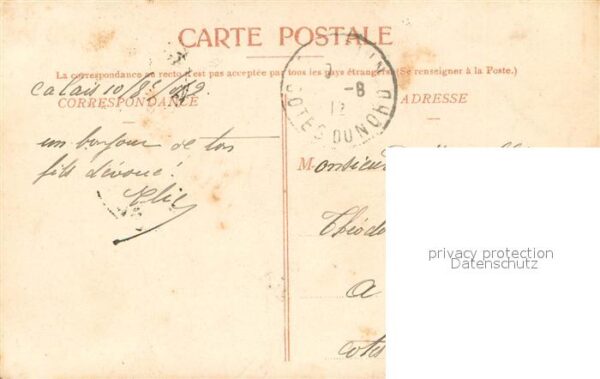 CARTE POSTALE
La correspondance au recto n'est pas acceptée par tous les pays étrangers (Se renseigner à la Poste.)
Calais 10/8/1912.
CORRESPONDANCE
ADRESSE
-8
12
COTES DU NORD
un bonjour de ton
fils dévoué!
Monsieur
Théodo
A
Cotes
privacy protection
Datenschutz